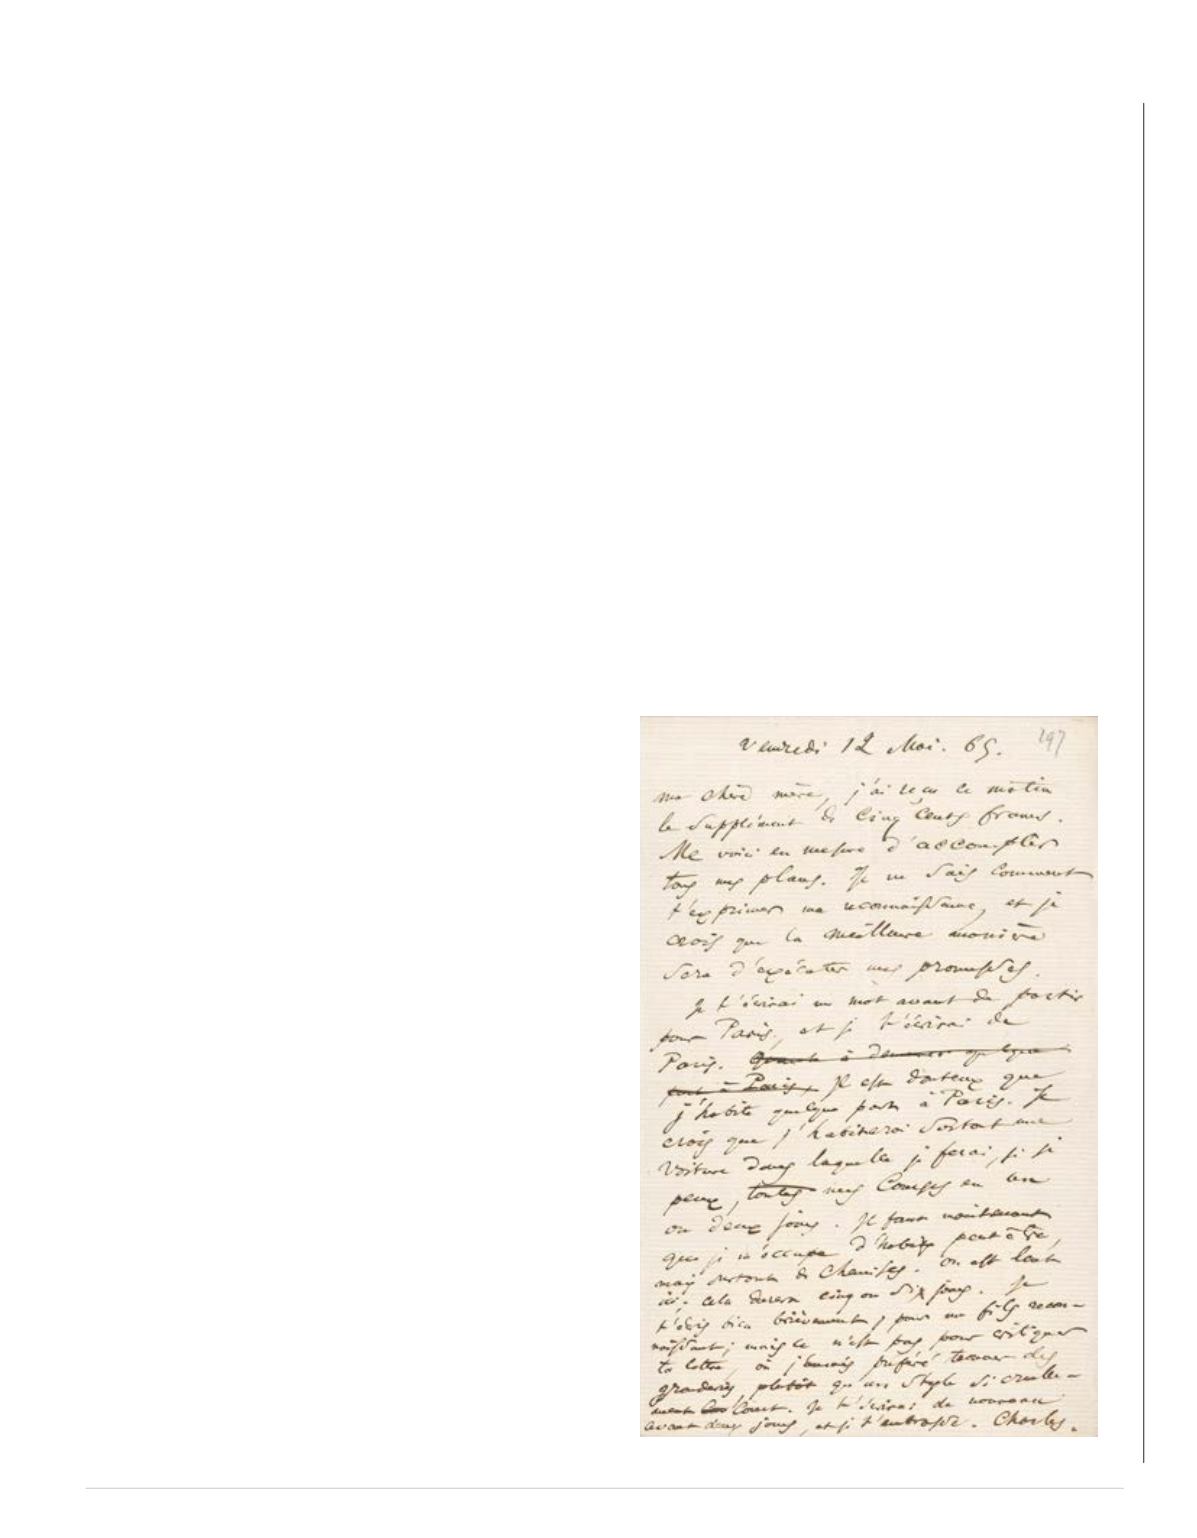 Vendredi 12 Mai. 65. 197
ma chère mère, j'ai reçu ce matin
le supplément de cinq cents francs.
Me voici en mesure d'accomplir
tous mes plans. Je ne sais comment
t'exprimer ma reconnaissance, et je
crois que la meilleure manière
sera d'exécuter mes promesses.
Je t'écrirai un mot avant de partir
pour Paris, et je t'écrirai de
Paris. Quant à demeurer quelque
part à Paris, Il est douteux que
j'habite quelque part à Paris. Je
crois que j'habiterai surtout une
voiture dans laquelle je ferai, si je
peux, toutes mes courses en un
ou deux jours. Il faut maintenant
que je m'occupe d'habits peut-être,
mais surtout de chemises. On est lent
ici. Cela durera cinq ou six jours. Je
t'écris bien brièvement, pour un fils recon-
naissant; mais ce n'est pas pour critiquer
ta lettre, où j'aurais préféré trouver des
gronderies plutôt qu'un style si cruelle-
ment court. Je t'écrirai de nouveau
avant deux jours, et je t'embrasse. Charles.